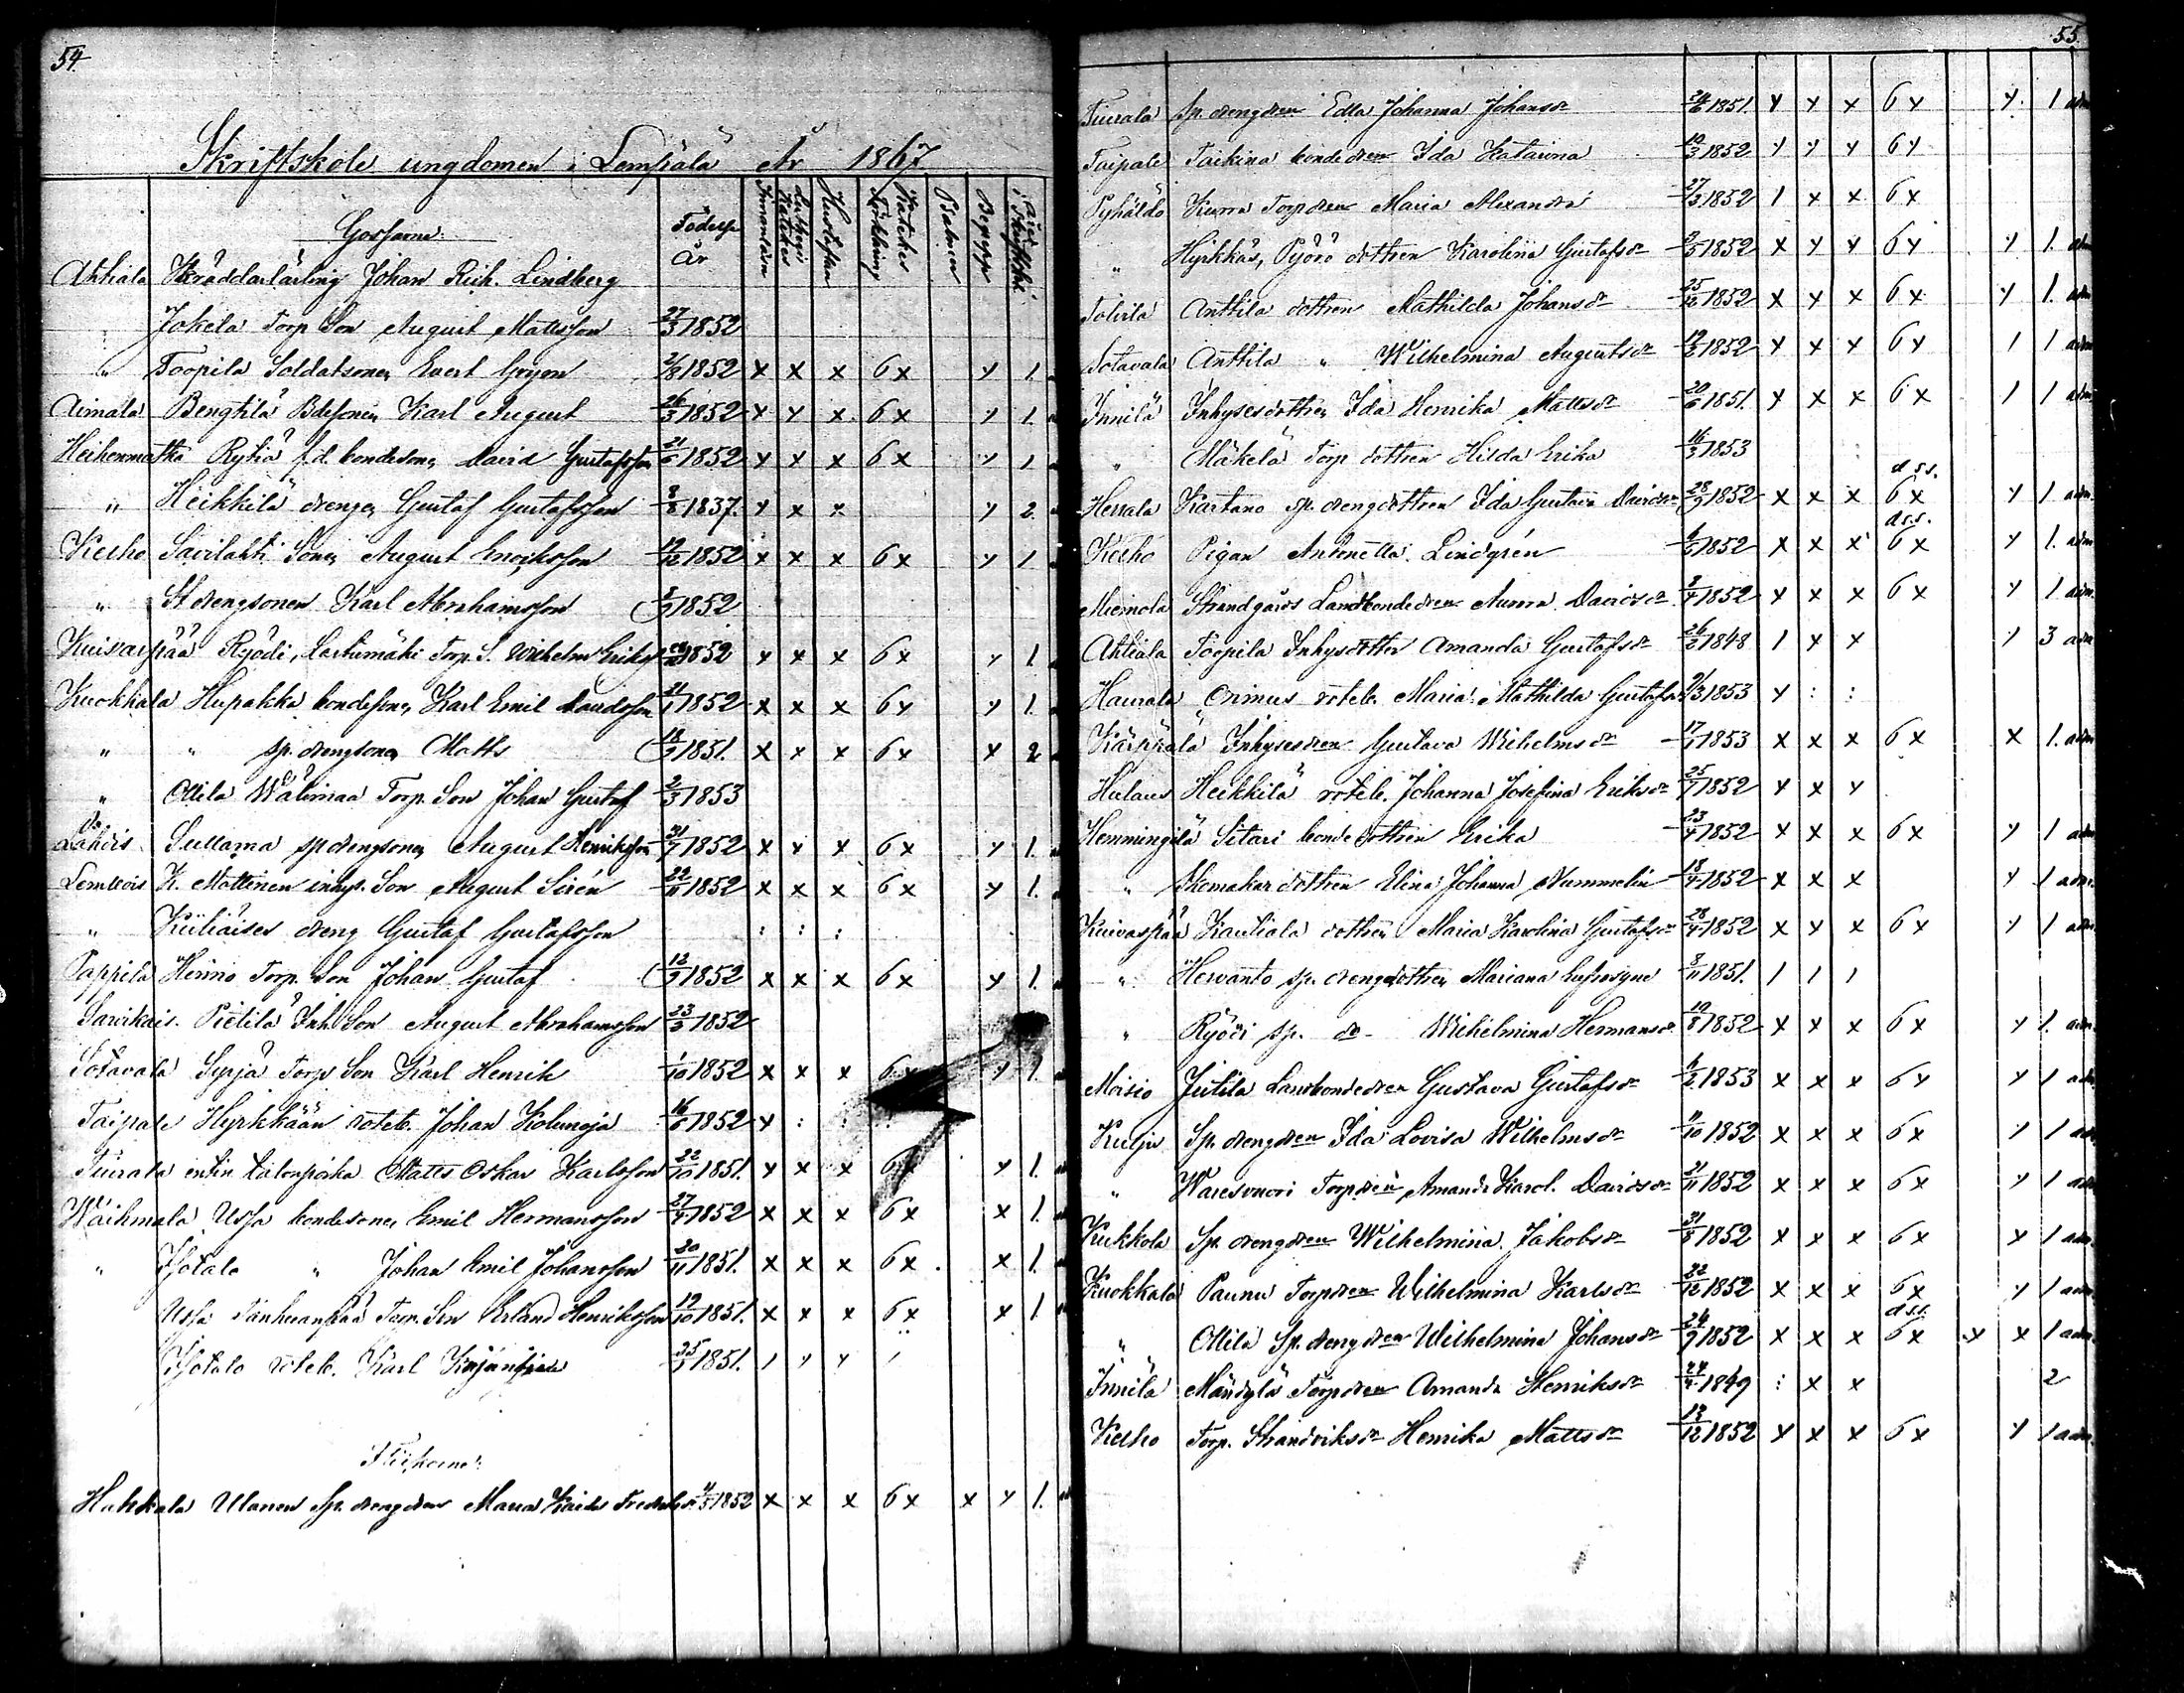 54.
Skriftskole ungdomen i Lempäälä År 1867
Gossarne:
Födelse År
Innanläsn
Lutheri Katekes
Hustaflan
Katekes förklaring
Psalmer
Begrepp
i Skriftskol.
Ahtiala Skräddarlärling Johan Rich. Lindberg
" Jokela Torp Son August Mattsson 27/3 1852
" Toopila Soldatsonen Evert Grijon 2/8 1852 x x x 6x y 1.
Aimala Bengtilä Bdesonen Karl August 26/3 1852 x y x. 6x y 1.
Heikenmatka Rytiä f.d. bondeson David Gustafsson 21/6 1852 y x x 6x y 1
" Heikkilä drengen Gustaf Gustafsson 8/8 1837. y x x y 2.
Kelho Savilahti Sonen August Enoksson 19/12 1852 x x x 6x y 1
" St drengsonen Karl Abrahamsson 1852
Kuivaspää Ryödi, Lastumäki Torp. S. Wilhelm Eriks 1852 y x x 6x y 1.
Kuokkala Hupakka bondeson Karl Emil Davidsson 21/1 1852 x x x 6y y 1.
" " sp. drengsonen Matts 18/9 1851. x x x 6x x 2
" Ollila Wälimaa Torp. Son Johan Gustaf 2/3 1853
Lahdis Sullama sp drengsonen August Henriksson 31/7 1852 x y x 6x y 1.
Lemlois K. Mottinen inhys. Son August Sirén 22/5 1852 x x x 6x y 1.
" Küliäises dreng Gustaf Gustafsson : : :
Pappila Herino Torp. Son Johan Gustaf 12/9 1852 x x x 6x y 1.
Sarvikais. Pietilä Inh Son August Abrahamsson 23/3 1852
Sotavala Syrjä Torp Son Karl Henrik 1/10 1852 x x x 6x y 1.
Taipale Hyrkkään roteb. Johan Kolunoja 16/6 1852 y : :
Tiurala entin talonpoika Matts Oskar Karlsson 22/10 1851. y x x 6x y 1.
Wäihmala Ussa bondesonen Emil Hermansson 27/9 1852 x x x 6x x 1.
" Isotalo " Johan Emil Johansson 20/11 1851. x x x 6x. x 1.
Ussa Tanhuanpää Torp. Son Erland Henriksson 19/10 1851. x x x 6x x 1.
Isotalo roteb. Karl 25/1 1851. 1 y y
Flickorne:
Hahkala Ulanen Sp. drengdren Maria Fredriks 4/5 1852 x x x 6x x y 1.
55.
Tiurala Sp. drengdren Edla Johanna Johansdr 24/6 1851. y y x 6x y. 1 adm
Taipale Taikina bondedren Ida Katarina 10/3 1852 y y y 6y
Pyhäldö Kurra Torpdren Maria Alexandra 27/3 1852 1 x x 6x
" Hyrkkäs, Pijörö dottren Karolina Gustafsdr 2/5 1852 x y y 6y y 1. adm
Tolvila Anttila dottren Mathilda Johansdr 25/12 1852 x x x 6x y 1. adm
Sotavala Anttila " Wilhelmina Augustsdr 19/2 1852 y x x 6y 1 1 adm
Innilä Inhysesdottren Ida Henrika Mattsdr 20/6 1851. y x x 6x 1 1 adm
" Mäkelä Torp dottren Hilda Erika 16/3 1853
Herrala Kartano sp. drengdottren Ida Gustava Davidsdr 28/9 1852 x x x d.s.s. 6x y 1 adm.
Kelho Pigan Antonetta Lindgrén 4/6 1852 x x x d.s.s. 6x y 1. adm
Miemola Strandgårds Landbondedren Aurora Davidsdr 2/4 1852 y x x 6x y 1 adm.
Ahtiala Toopila Inhysdotter Amanda Gustafsdr 26/2 1848 1 x x y 3 adm
Haurala Onimus roteb. Maria Mathilda Gustafs 21/3 1853 y : :
Kärpkälä Inhysesdren Gustava Wilhelmsdr 17/1 1853 x x x 6x x 1. adm
Hulaus Heikkilä roteb. Johanna Josefina Eriksdr 25/7 1852 y x y
Hemmingilä Sitari bonde dottren Erika 23/4 1852 x x x 6x y 1 adm
" Skomakar dottren Elina Johanna Nummelin 18/4 1852 x x x y 1 adm.
Kuivaspää Kautiala dottren Maria Karolina Gustafsdr 28/4 1852 x x x 6x y 1 adm.
" Hervanto sp. drengdottren Mariana Eufrosyne 8/11 1851. 1 1 1
" Ryödi sp. dr Wilhelmina Hermansdr. 10/8 1852 x x x 6x y 1. adm.
Moisio Jutila Landbondedren Gustava Gustafsdr 6/2 1853 x x x 6y y 1 adm
Kuljn Sp. drengdren Ida Lovisa Wilhelmsdr 11/10 1852 x x x 6x y 1 adm
" Waresvuori Torpdren Amanda Karol. Davidsdr 21/11 1852 x x x 6x y 1 adm
Kukkola Sp. drengdren Wilhelmina Jakobsdr 31/5 1852 x x x 6x y 1 adm.
Kuokkala Paunu Torpdren Wilhelmina Karlsdr 22/12 1852 x x x 6x y 1 adm
" Ollila Sp. drengdren Wilhelmina Johansdr 24/9 1852 x x x d.s.s. 6x x x 1 adm.
Innilä Mandylä Torpdren Amanda Henriksdr 24/4 1849 : x x 2
Kelho Torp. Strandviksdr Henrika Mattsdr 13/12 1852 x x x 6x y 1 adm.